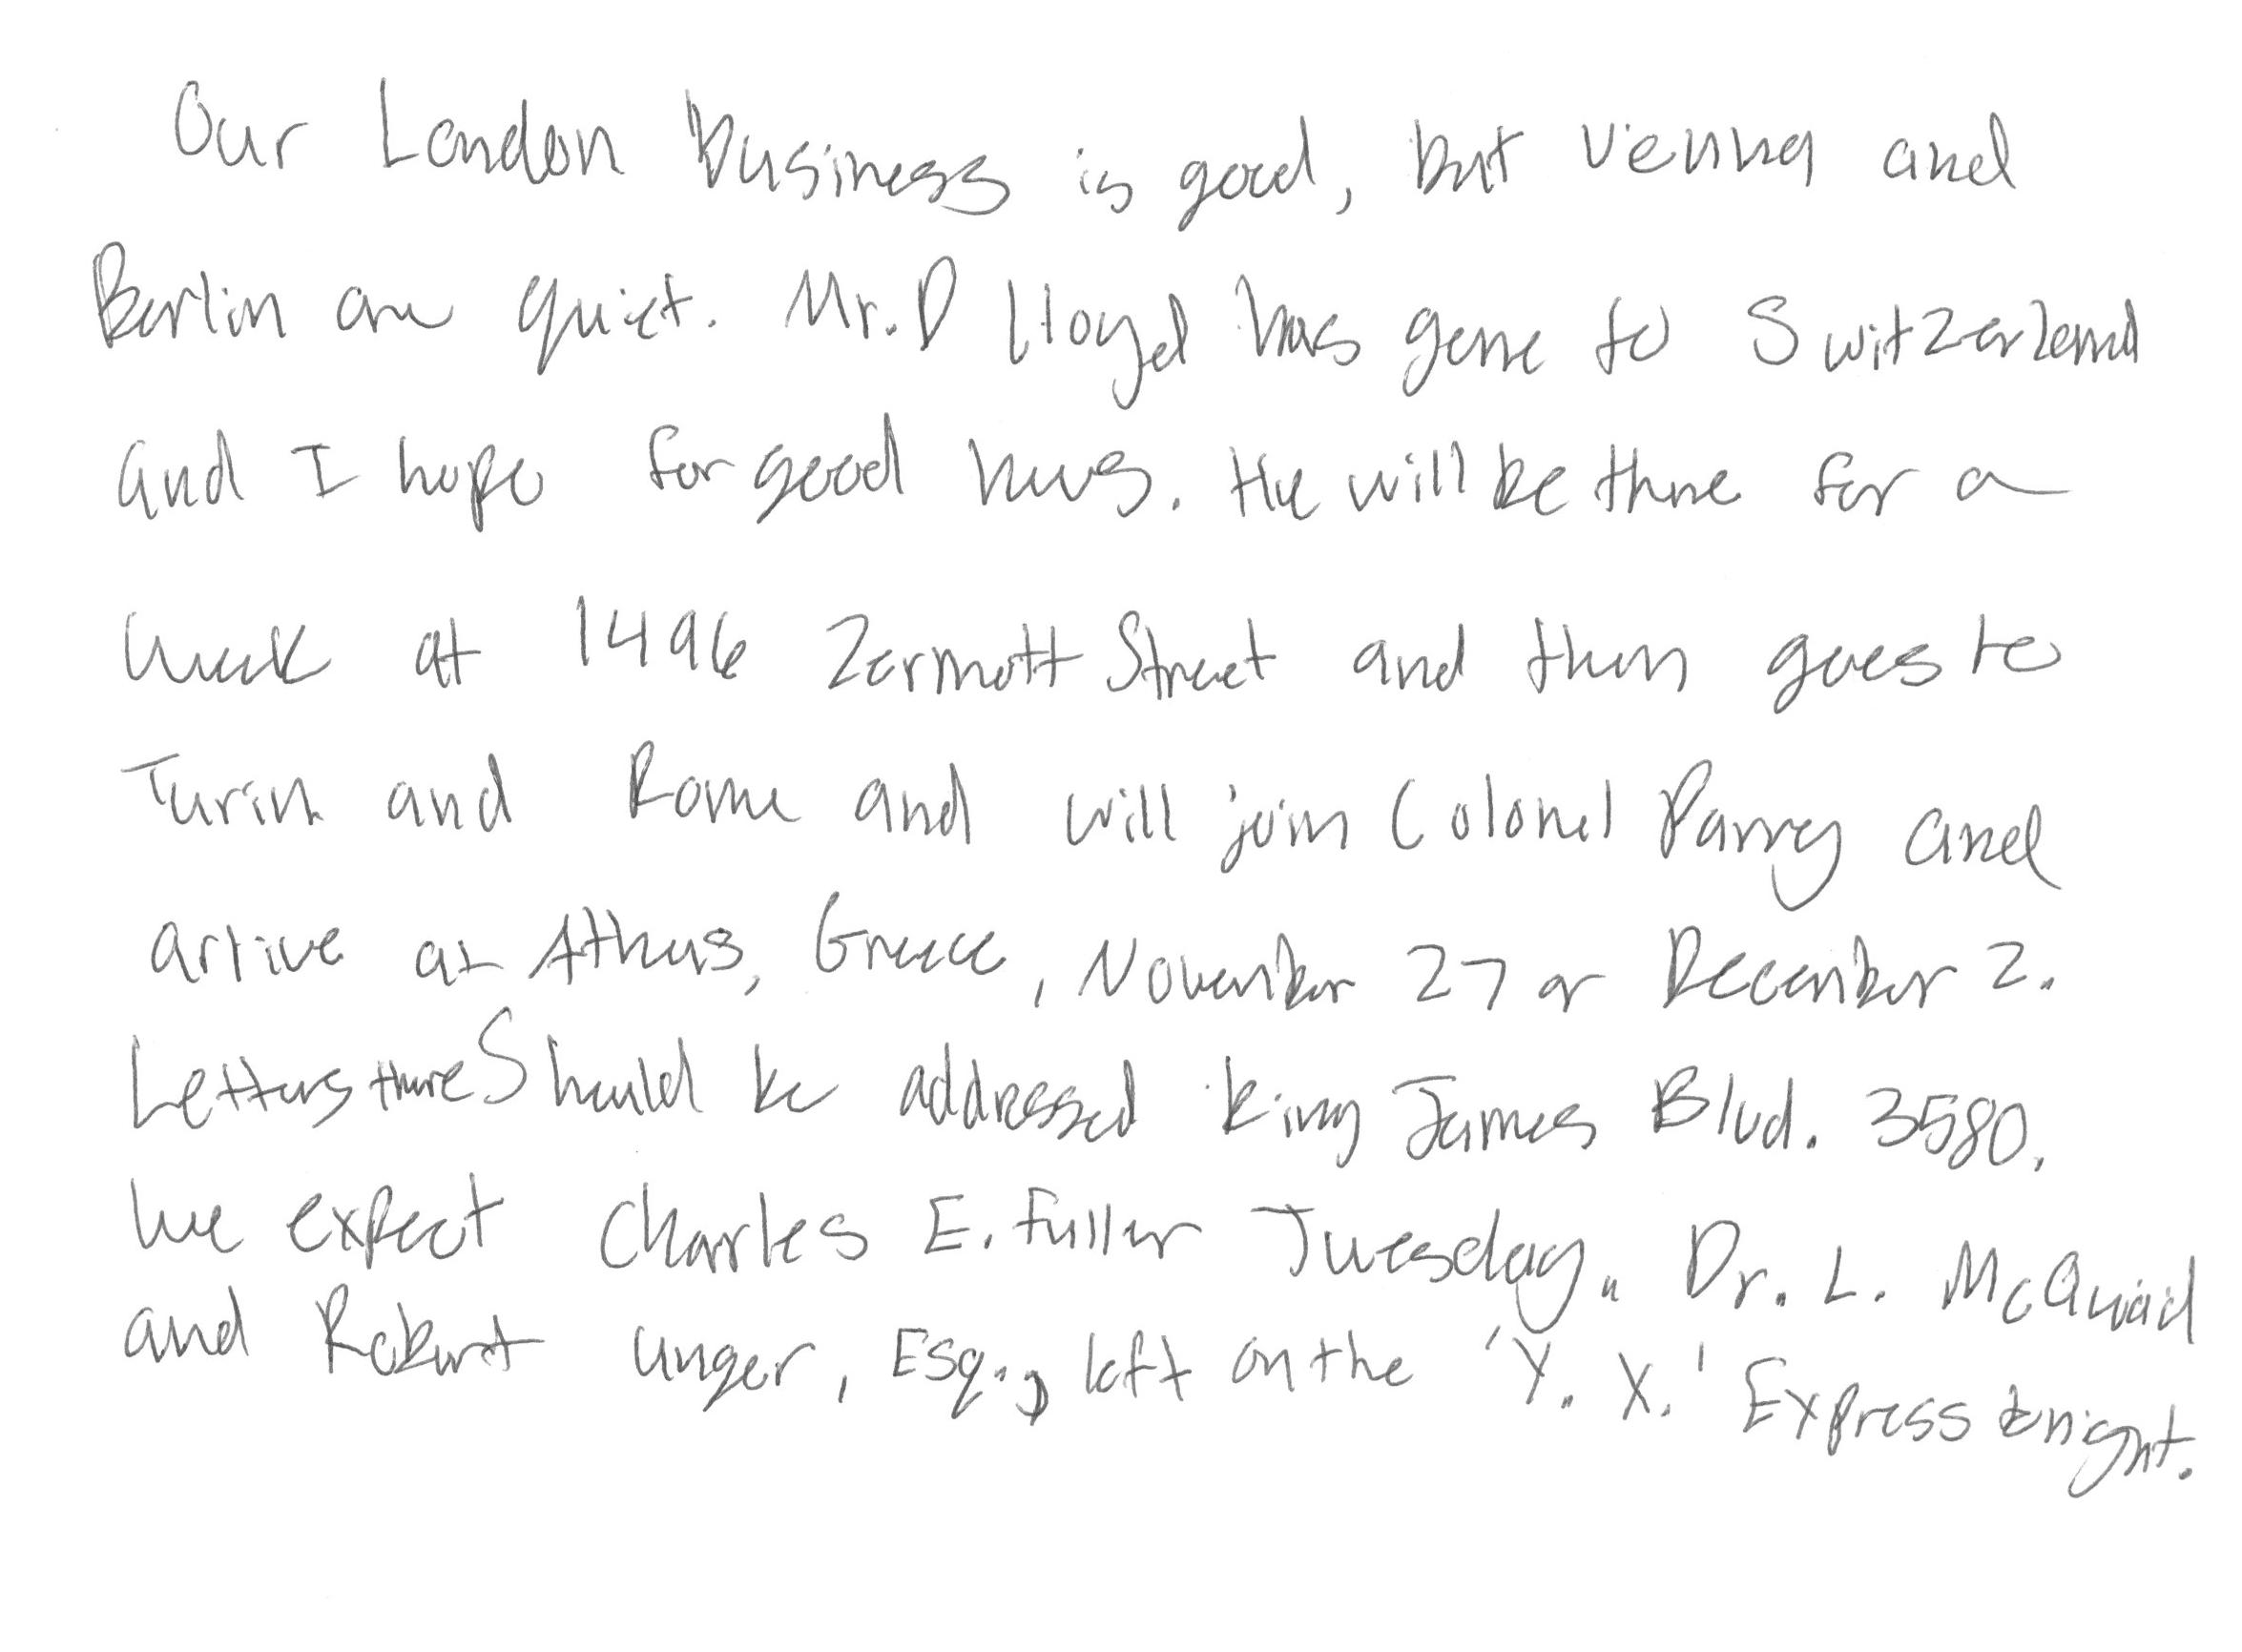 Our London business is good, but Vienna and
Berlin are quiet. Mr. D Lloyd has gone to Switzerland
and I hope for good news. He will be there for a
week at 1496 Zermott Street and then goes to
Turin and Rome and will join Colonel Parry and
arrive at Athens, Greece, November 27 or December 2.
Letters there should be addressed King James Blvd. 3580.
We expect Charles E. Fuller Tuesday. Dr. L. McQuaid
and Robert Unger, Esq., left on the 'Y. X.' Express tonight.